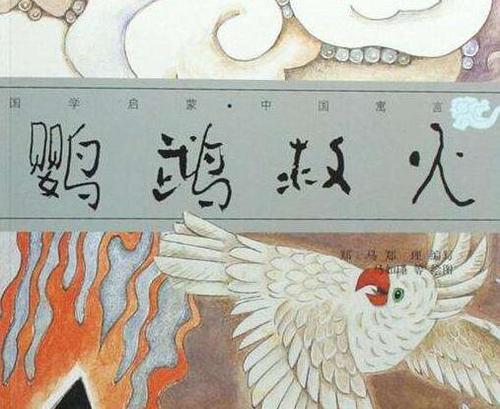 国学启蒙·中国寓言
鹦鹉救火
郑 马 郑 理 编写
等 绘图